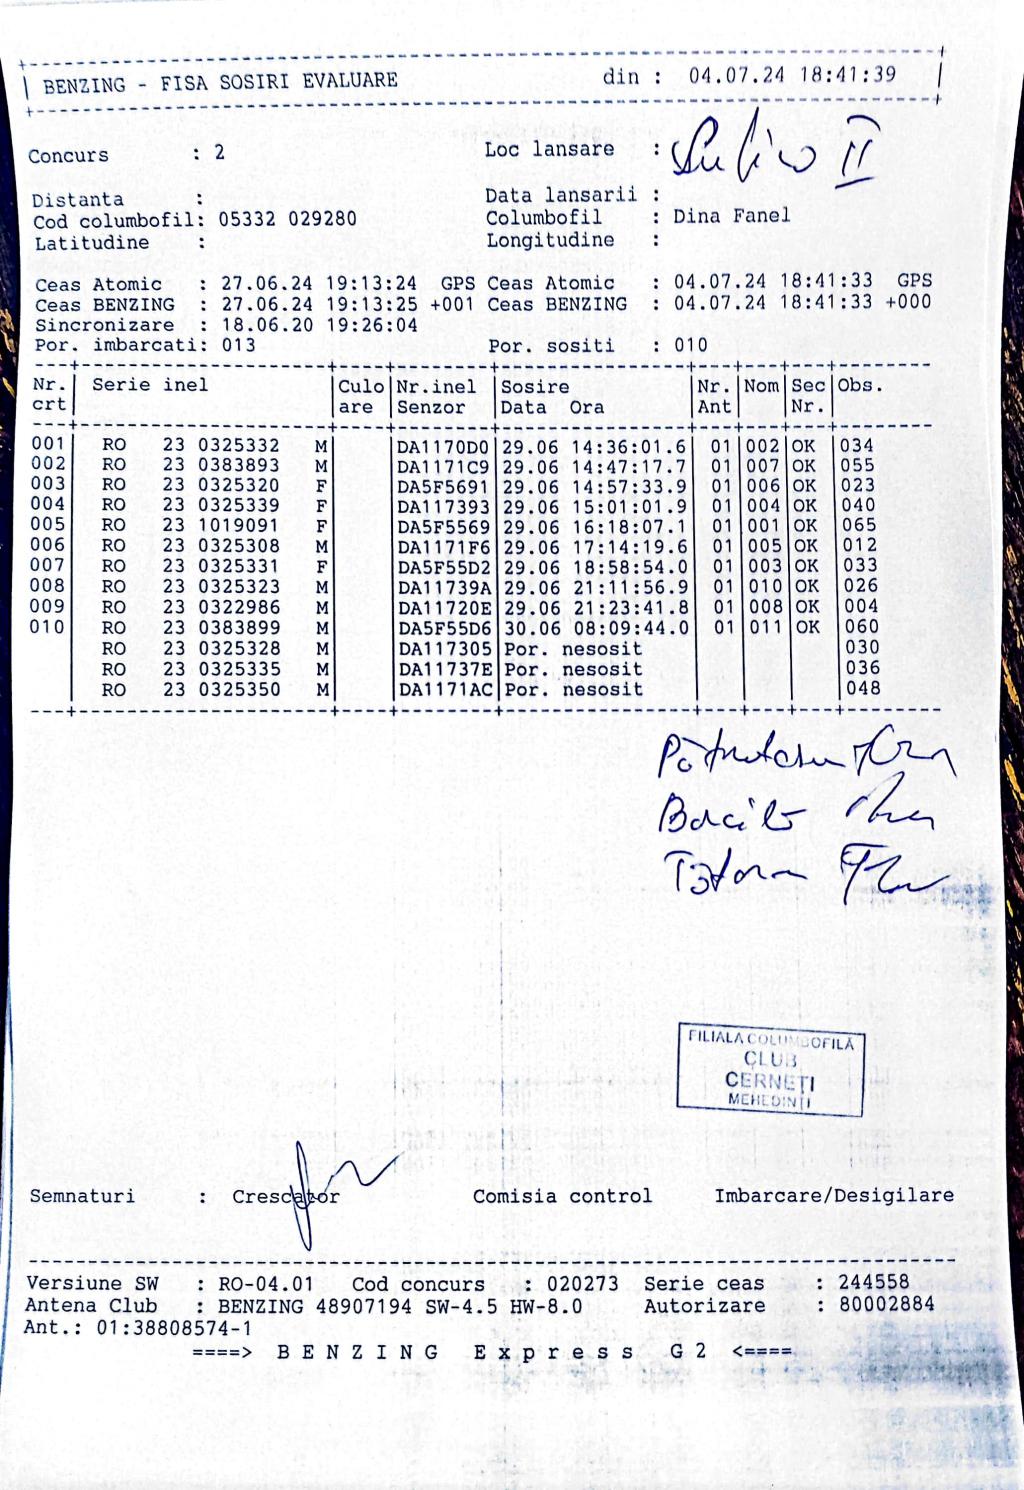 BENZING - FISA SOSIRI EVALUARE din : 04.07.24 18:41:39
Concurs : 2 Loc lansare : II
Distanta : Data lansarii :
Cod columbofil: 05332 029280 Columbofil : Dina Fanel
Latitudine : Longitudine :
Ceas Atomic : 27.06.24 19:13:24 GPS Ceas Atomic : 04.07.24 18:41:33 GPS
Ceas BENZING : 27.06.24 19:13:25 +001 Ceas BENZING : 04.07.24 18:41:33 +000
Sincronizare : 18.06.20 19:26:04
Por. imbarcati: 013 Por. sositi : 010
Nr. Serie inel Culo Nr.inel Sosire Nr. Nom Sec Obs.
crt are Senzor Data Ora Ant Nr.
001 RO 23 0325332 M DA1170D0 29.06 14:36:01.6 01 002 OK 034
002 RO 23 0383893 M DA1171C9 29.06 14:47:17.7 01 007 OK 055
003 RO 23 0325320 F DA5F5691 29.06 14:57:33.9 01 006 OK 023
004 RO 23 0325339 F DA117393 29.06 15:01:01.9 01 004 OK 040
005 RO 23 1019091 F DA5F5569 29.06 16:18:07.1 01 001 OK 065
006 RO 23 0325308 M DA1171F6 29.06 17:14:19.6 01 005 OK 012
007 RO 23 0325331 F DA5F55D2 29.06 18:58:54.0 01 003 OK 033
008 RO 23 0325323 M DA11739A 29.06 21:11:56.9 01 010 OK 026
009 RO 23 0322986 M DA11720E 29.06 21:23:41.8 01 008 OK 004
010 RO 23 0383899 M DA5F55D6 30.06 08:09:44.0 01 011 OK 060
RO 23 0325328 M DA117305 Por. nesosit 030
RO 23 0325335 M DA11737E Por. nesosit 036
RO 23 0325350 M DA1171AC Por. nesosit 048
FILIALA COLUMBOFILĂ
CLUB
CERNEȚI
MEHEDINȚI
Semnaturi : Crescator Comisia control Imbarcare/Desigilare
Versiune SW : RO-04.01 Cod concurs : 020273 Serie ceas : 244558
Antena Club : BENZING 48907194 SW-4.5 HW-8.0 Autorizare : 80002884
Ant.: 01:38808574-1
====> B E N Z I N G E x p r e s s G 2 <====